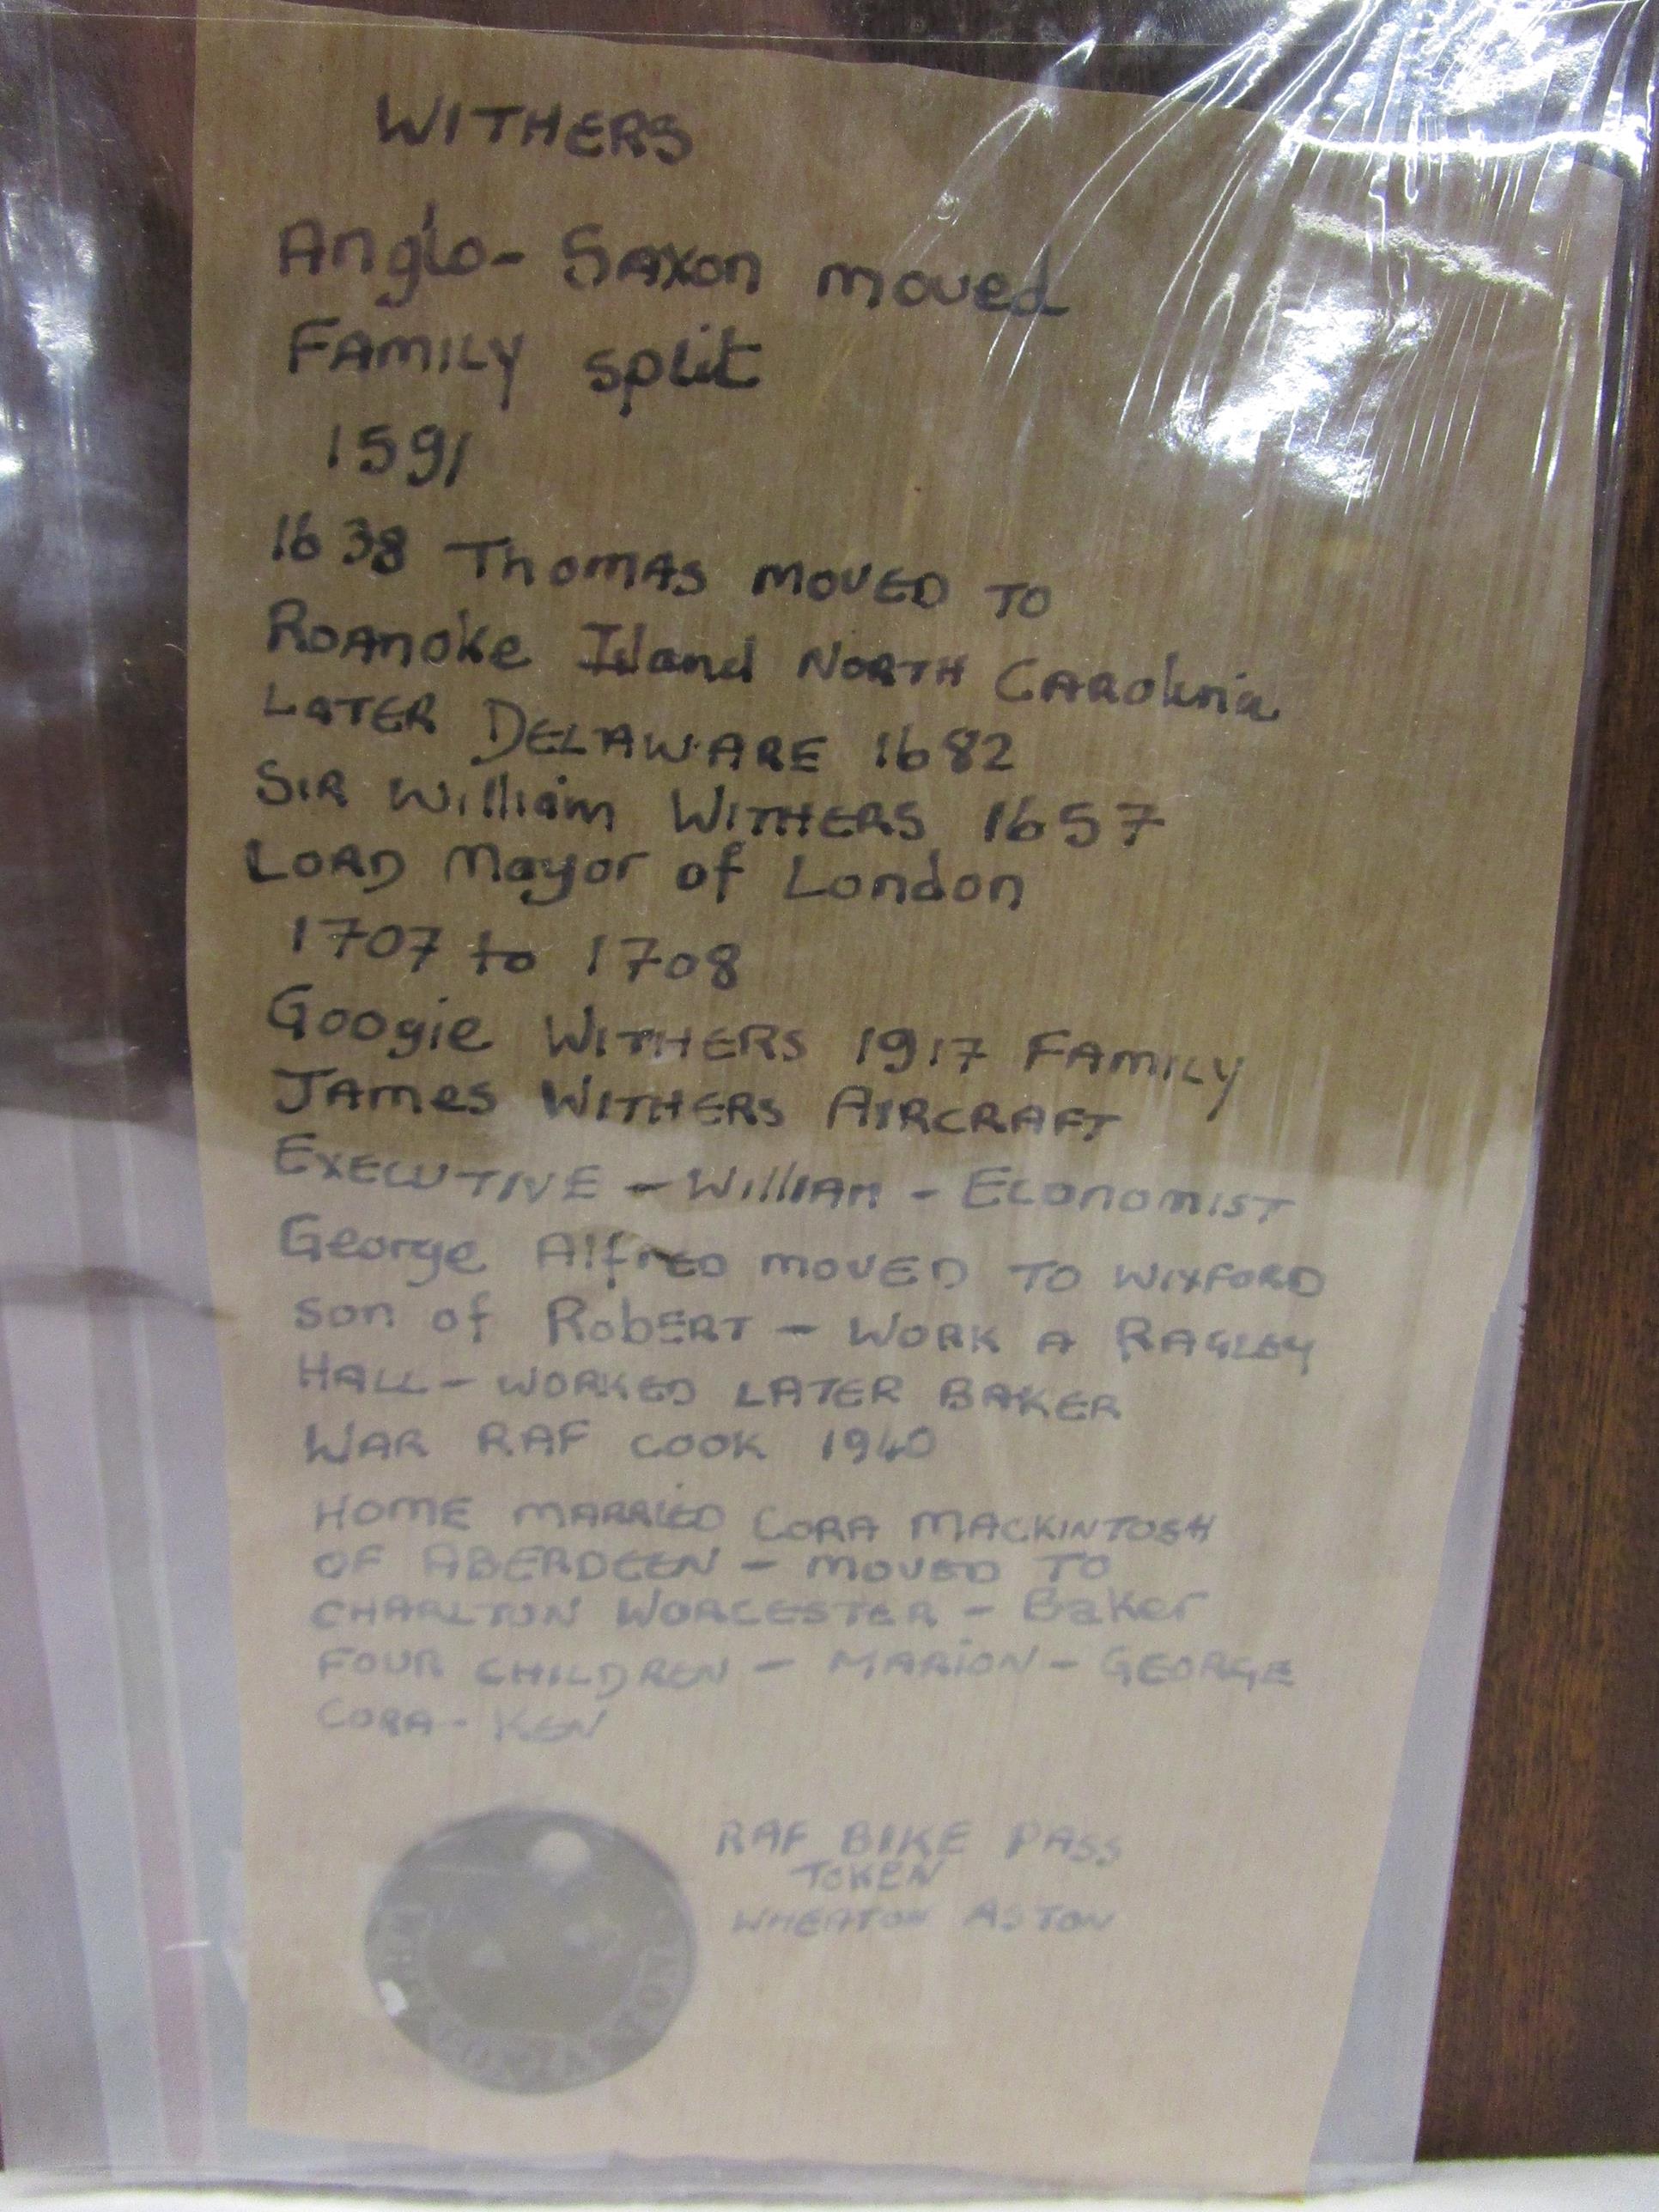 WITHERS
Anglo-Saxon moved
FAMILY split
1591
1638 Thomas MOVED TO
Roanoke Island NORTH CAROLINA
LATER DELAWARE 1682
SIR William WITHERS 1657
LORD Mayor of London
1707 to 1708
Googie WITHERS 1917 FAMILY
JAMES WITHERS AIRCRAFT
EXECUTIVE - William - ECONOMIST
George Alfred MOVED TO WIXFORD
son of Robert - WORK A RAGLEY
HALL - WORKED LATER BAKER
WAR RAF COOK 1940
HOME MARRIED CORA MACKINTOSH
OF ABERDEEN - MOVED TO
CHARLTON WORCESTER - Baker
FOUR CHILDREN - MARION - GEORGE
CORA - KEN
RAF BIKE PASS
TOKEN
WHEATON ASTON